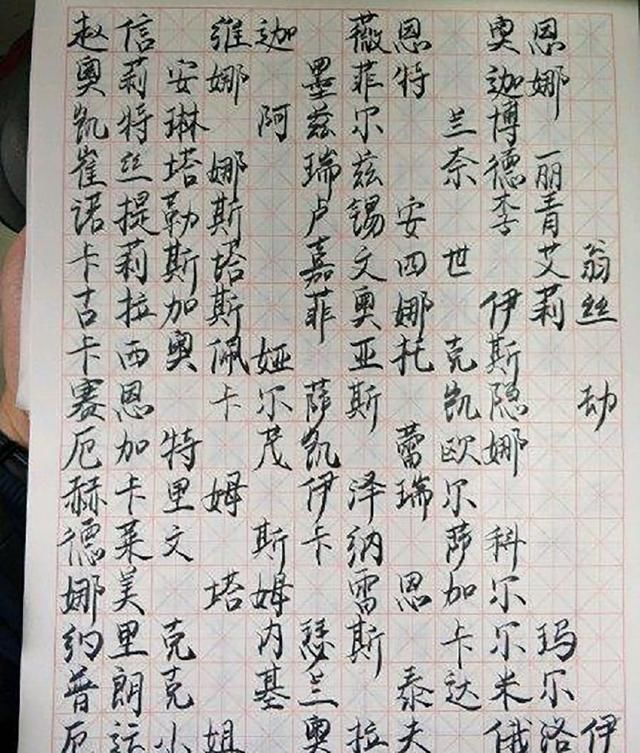 赵信 维迦 薇恩 奥恩
奥莉安娜 墨菲特 迦娜
凯特琳 阿兹尔 兰博
崔丝塔娜 瑞兹 奈德丽
诺提勒斯 卢锡安 李青
卡莉斯塔 嘉文四世 艾翁
古拉加斯 菲奥娜 伊莉丝
卡西奥佩娅 亚托克斯
赛恩 卡尔萨斯 凯隐 劫
厄加特 茂凯 蕾欧娜
赫卡里姆 伊泽瑞尔
德莱文 斯卡纳 萨科
娜美 塔姆 雷恩加尔
纳里克 内瑟斯 卡尔玛
普朗克 基兰 泰达米尔
厄运小姐 奥拉夫 俄洛伊